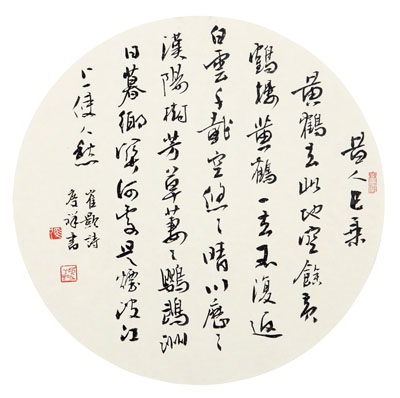 昔人已乘
黃鶴去此地空餘黃
鶴樓黃鶴一去不復返
白雲千載空悠々晴川歷々
漢陽樹芳草萋々鸚鵡洲
日暮鄉關何處是煙波江
上使人愁
崔顥詩
祥書